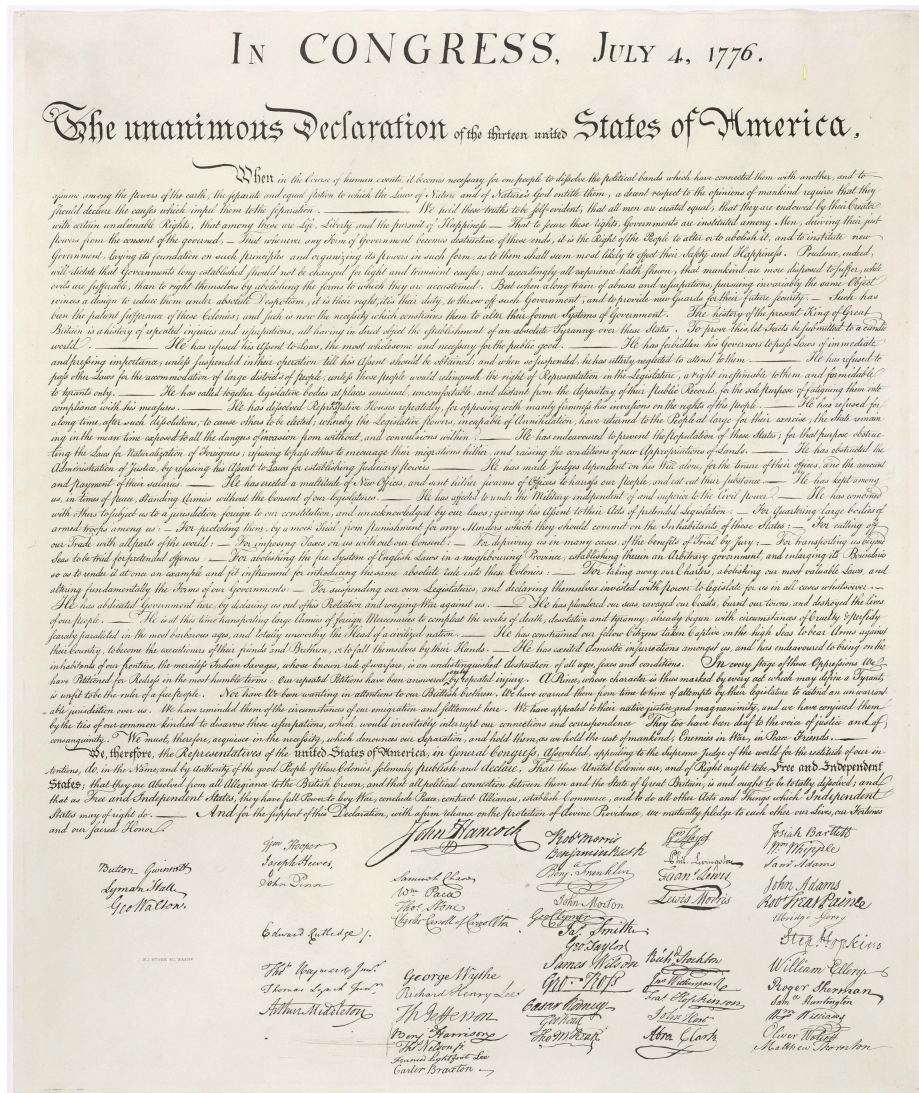 IN CONGRESS, JULY 4, 1776.
The unanimous Declaration of the thirteen united States of America,
When in the Course of human events, it becomes necessary for one people to dissolve the political bands which have connected them with another, and to
assume among the powers of the earth, the separate and equal station to which the Laws of Nature and of Nature's God entitle them, a decent respect to the opinions of mankind requires that they
should declare the causes which impel them to the separation. ——— We hold these truths to be self-evident, that all men are created equal, that they are endowed by their Creator
with certain unalienable Rights, that among these are Life, Liberty and the pursuit of Happiness — That to secure these rights, Governments are instituted among Men, deriving their just
powers from the consent of the governed, — That whenever any Form of Government becomes destructive of these ends, it is the Right of the People to alter or to abolish it, and to institute new
Government, laying its foundation on such principles and organizing its powers in such form, as to them shall seem most likely to effect their Safety and Happiness. Prudence, indeed,
will dictate that Governments long established should not be changed for light and transient causes; and accordingly all experience hath shewn, that mankind are more disposed to suffer, while
evils are sufferable, than to right themselves by abolishing the forms to which they are accustomed. But when a long train of abuses and usurpations, pursuing invariably the same Object
evinces a design to reduce them under absolute Despotism, it is their right, it is their duty, to throw off such Government, and to provide new Guards for their future security. — Such has
been the patient sufferance of these Colonies; and such is now the necessity which constrains them to alter their former Systems of Government. The history of the present King of Great
Britain is a history of repeated injuries and usurpations, all having in direct object the establishment of an absolute Tyranny over these States. To prove this, let Facts be submitted to a candid
world. ——— He has refused his Assent to Laws, the most wholesome and necessary for the public good. ——— He has forbidden his Governors to pass Laws of immediate
and pressing importance, unless suspended in their operation till his Assent should be obtained; and when so suspended, he has utterly neglected to attend to them. ——— He has refused to
pass other Laws for the accommodation of large districts of people, unless those people would relinquish the right of Representation in the Legislature, a right inestimable to them and formidable
to tyrants only. ——— He has called together legislative bodies at places unusual, uncomfortable, and distant from the depository of their public Records, for the sole purpose of fatiguing them into
compliance with his measures. ——— He has dissolved Representative Houses repeatedly, for opposing with manly firmness his invasions on the rights of the people. ——— He has refused for
a long time, after such dissolutions, to cause others to be elected; whereby the Legislative powers, incapable of Annihilation, have returned to the People at large for their exercise; the State remain
ing in the mean time exposed to all the dangers of invasion from without, and convulsions within. ——— He has endeavoured to prevent the population of these States; for that purpose obstruc
ting the Laws for Naturalization of Foreigners; refusing to pass others to encourage their migrations hither, and raising the conditions of new Appropriations of Lands. ——— He has obstructed the
Administration of Justice, by refusing his Assent to Laws for establishing Judiciary powers. ——— He has made Judges dependent on his Will alone, for the tenure of their offices, and the amount
and payment of their salaries. ——— He has erected a multitude of New Offices, and sent hither swarms of Officers to harrass our people, and eat out their substance. ——— He has kept among
us, in times of peace, Standing Armies without the Consent of our legislatures. ——— He has affected to render the Military independent of and superior to the Civil power. ——— He has combined
with others to subject us to a jurisdiction foreign to our constitution, and unacknowledged by our laws; giving his Assent to their Acts of pretended Legislation: — For Quartering large bodies of
armed troops among us: — For protecting them, by a mock Trial, from punishment for any Murders which they should commit on the Inhabitants of these States: — For cutting off
our Trade with all parts of the world: — For imposing Taxes on us without our Consent: — For depriving us in many cases, of the benefits of Trial by Jury: — For transporting us beyond
Seas to be tried for pretended offences — For abolishing the free System of English Laws in a neighbouring Province, establishing therein an Arbitrary government, and enlarging its Boundaries
so as to render it at once an example and fit instrument for introducing the same absolute rule into these Colonies: — For taking away our Charters, abolishing our most valuable Laws, and
altering fundamentally the Forms of our Governments: — For suspending our own Legislatures, and declaring themselves invested with power to legislate for us in all cases whatsoever. —
He has abdicated Government here, by declaring us out of his Protection and waging War against us. ——— He has plundered our seas, ravaged our Coasts, burnt our towns, and destroyed the lives
of our people. ——— He is at this time transporting large Armies of foreign Mercenaries to compleat the works of death, desolation and tyranny, already begun with circumstances of Cruelty & perfidy
scarcely paralleled in the most barbarous ages, and totally unworthy the Head of a civilized nation. ——— He has constrained our fellow Citizens taken Captive on the high Seas to bear Arms against
their Country, to become the executioners of their friends and Brethren, or to fall themselves by their Hands. ——— He has excited domestic insurrections amongst us, and has endeavoured to bring on the
inhabitants of our frontiers, the merciless Indian Savages, whose known rule of warfare, is an undistinguished destruction of all ages, sexes and conditions. In every stage of these Oppressions We
have Petitioned for Redress in the most humble terms: Our repeated Petitions have been answered only by repeated injury. A Prince, whose character is thus marked by every act which may define a Tyrant,
is unfit to be the ruler of a free people. Nor have We been wanting in attentions to our Brittish brethren. We have warned them from time to time of attempts by their legislature to extend an unwarrant
able jurisdiction over us. We have reminded them of the circumstances of our emigration and settlement here. We have appealed to their native justice and magnanimity, and we have conjured them
by the ties of our common kindred to disavow these usurpations, which, would inevitably interrupt our connections and correspondence. They too have been deaf to the voice of justice and of
consanguinity. We must, therefore, acquiesce in the necessity, which denounces our Separation, and hold them, as we hold the rest of mankind, Enemies in War, in Peace Friends. ———
We, therefore, the Representatives of the united States of America, in General Congress, Assembled, appealing to the Supreme Judge of the world for the rectitude of our in-
tentions, do, in the Name, and by Authority of the good People of these Colonies, solemnly publish and declare, That these United Colonies are, and of Right ought to be Free and Independent
States; that they are Absolved from all Allegiance to the British Crown, and that all political connection between them and the State of Great Britain, is and ought to be totally dissolved; and
that as Free and Independent States, they have full Power to levy War, conclude Peace, contract Alliances, establish Commerce, and to do all other Acts and Things which Independent
States may of right do. ——— And for the support of this Declaration, with a firm reliance on the protection of divine Providence, we mutually pledge to each other our Lives, our Fortunes
and our sacred Honor.
Button Gwinnett
Lyman Hall
Geo Walton.
Wm Hooper
Joseph Hewes,
John Penn
Edward Rutledge /.
Thos Heyward Junr.
Thomas Lynch Junr.
Arthur Middleton
John Hancock
Samuel Chase
Wm Paca
Thos Stone
Charles Carroll of Carrollton
George Wythe
Richard Henry Lee
Th Jefferson
Benja Harrison
Thos Nelson jr.
Francis Lightfoot Lee
Carter Braxton
Robt Morris
Benjamin Rush
Benja Franklin
John Morton
Geo Clymer
Jas. Smith
Geo. Taylor
James Wilson
Geo. Ross
Caesar Rodney
Geo Read
Tho M:Kean
Wm Floyd
Phil. Livingston
Frans. Lewis
Lewis Morris
Richd. Stockton
Jno Witherspoon
Fras. Hopkinson
John Hart
Abra Clark
Josiah Bartlett
Wm: Whipple
Saml Adams
John Adams
Robt Treat Paine
Elbridge Gerry
Step. Hopkins
William Ellery
Roger Sherman
Saml Huntington
Wm Williams
Oliver Wolcott
Matthew Thornton
W.J. STONE SC. WASHN